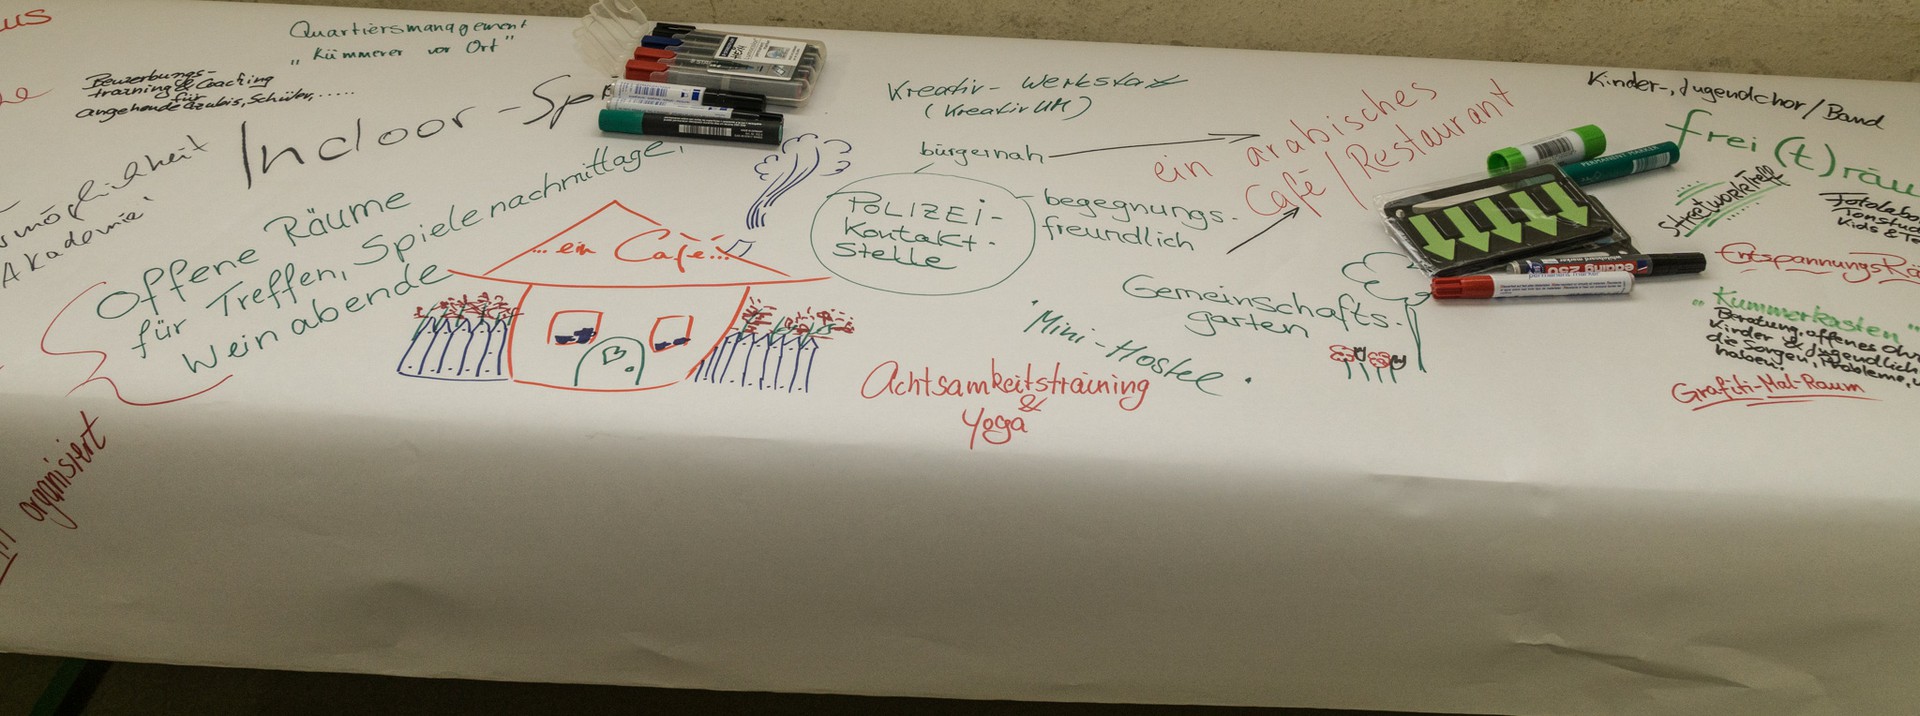 Quartiersmanagement
„Kümmerer vor Ort"
Bewerbungs-
training & Coaching
für
angehende Azubis, Schüler, .....
Indoor-Sp
Akademie
Offene Räume
für Treffen, Spielenachmittage,
Weinabende
organisiert
...ein Café...
B.
Kreativ-Werkstatt
(KreativUM)
bürgernah
POLIZEI-
Kontakt-
stelle
begegnungs-
freundlich
ein arabisches
Café / Restaurant
Gemeinschafts-
garten
Mini-Hostel.
Achtsamkeitstraining
&
Yoga
Kinder-, Jugendchor / Band
frei(t)räu
Streetworktreff
Fotolabo
Tonstud
Kids & Te
PERMANENT MARKER
edding 250
permanent marker
Entspannungsrä
„Kummerkasten"
Beratung, offenes Ohr
Kinder & Jugendlich
die Sorgen, Probleme, u
haben!
Grafiti-Mal-Raum